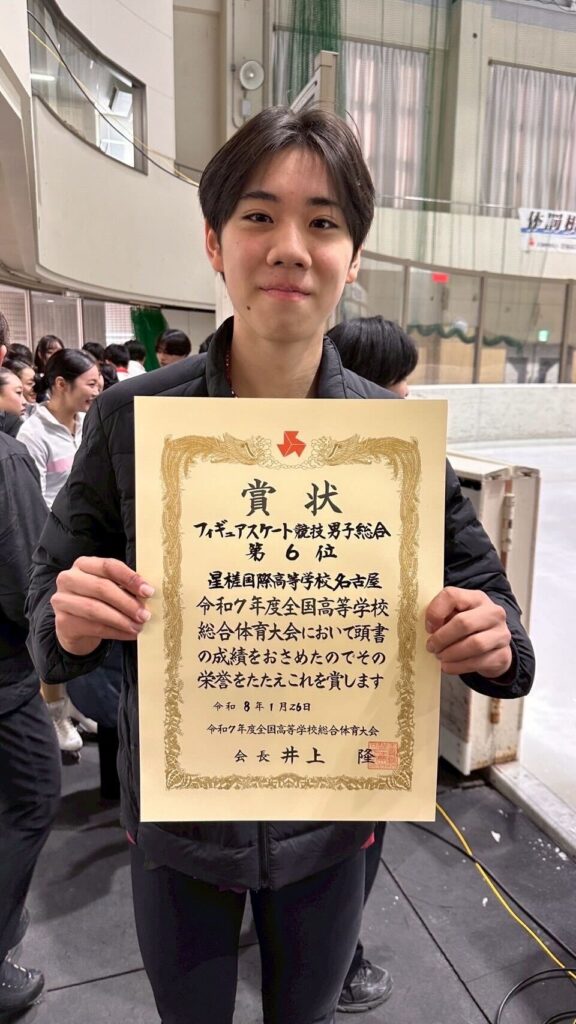 賞状
フィギュアスケート競技男子総合
第6位
星槎国際高等学校名古屋
令和7年度全国高等学校
総合体育大会において頭書
の成績をおさめたのでその
栄誉をたたえこれを賞します
令和8年1月26日
令和7年度全国高等学校総合体育大会
会長 井上 隆